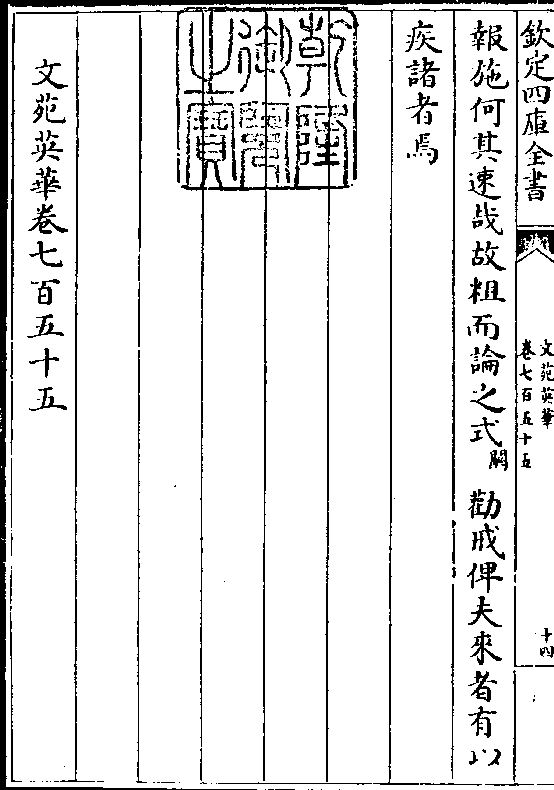 欽定四庫全書
文苑英華
卷七百五十五
十四
報施何其速哉故粗而論之式闕勸戒俾夫來者有以
疾諸者焉
乾隆御覽之寶
文苑英華卷七百五十五